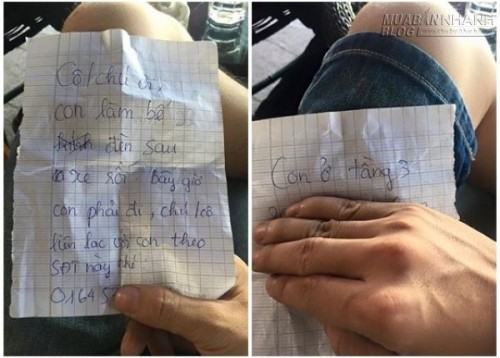 Cô/chú ơi,
con làm bể
kính đèn sau
xe rồi bây giờ
con phải đi, chú/cô
liên lạc với con theo
SĐT này nhé
01645
Con ở tầng 3
MUABANNHANH
BLOG